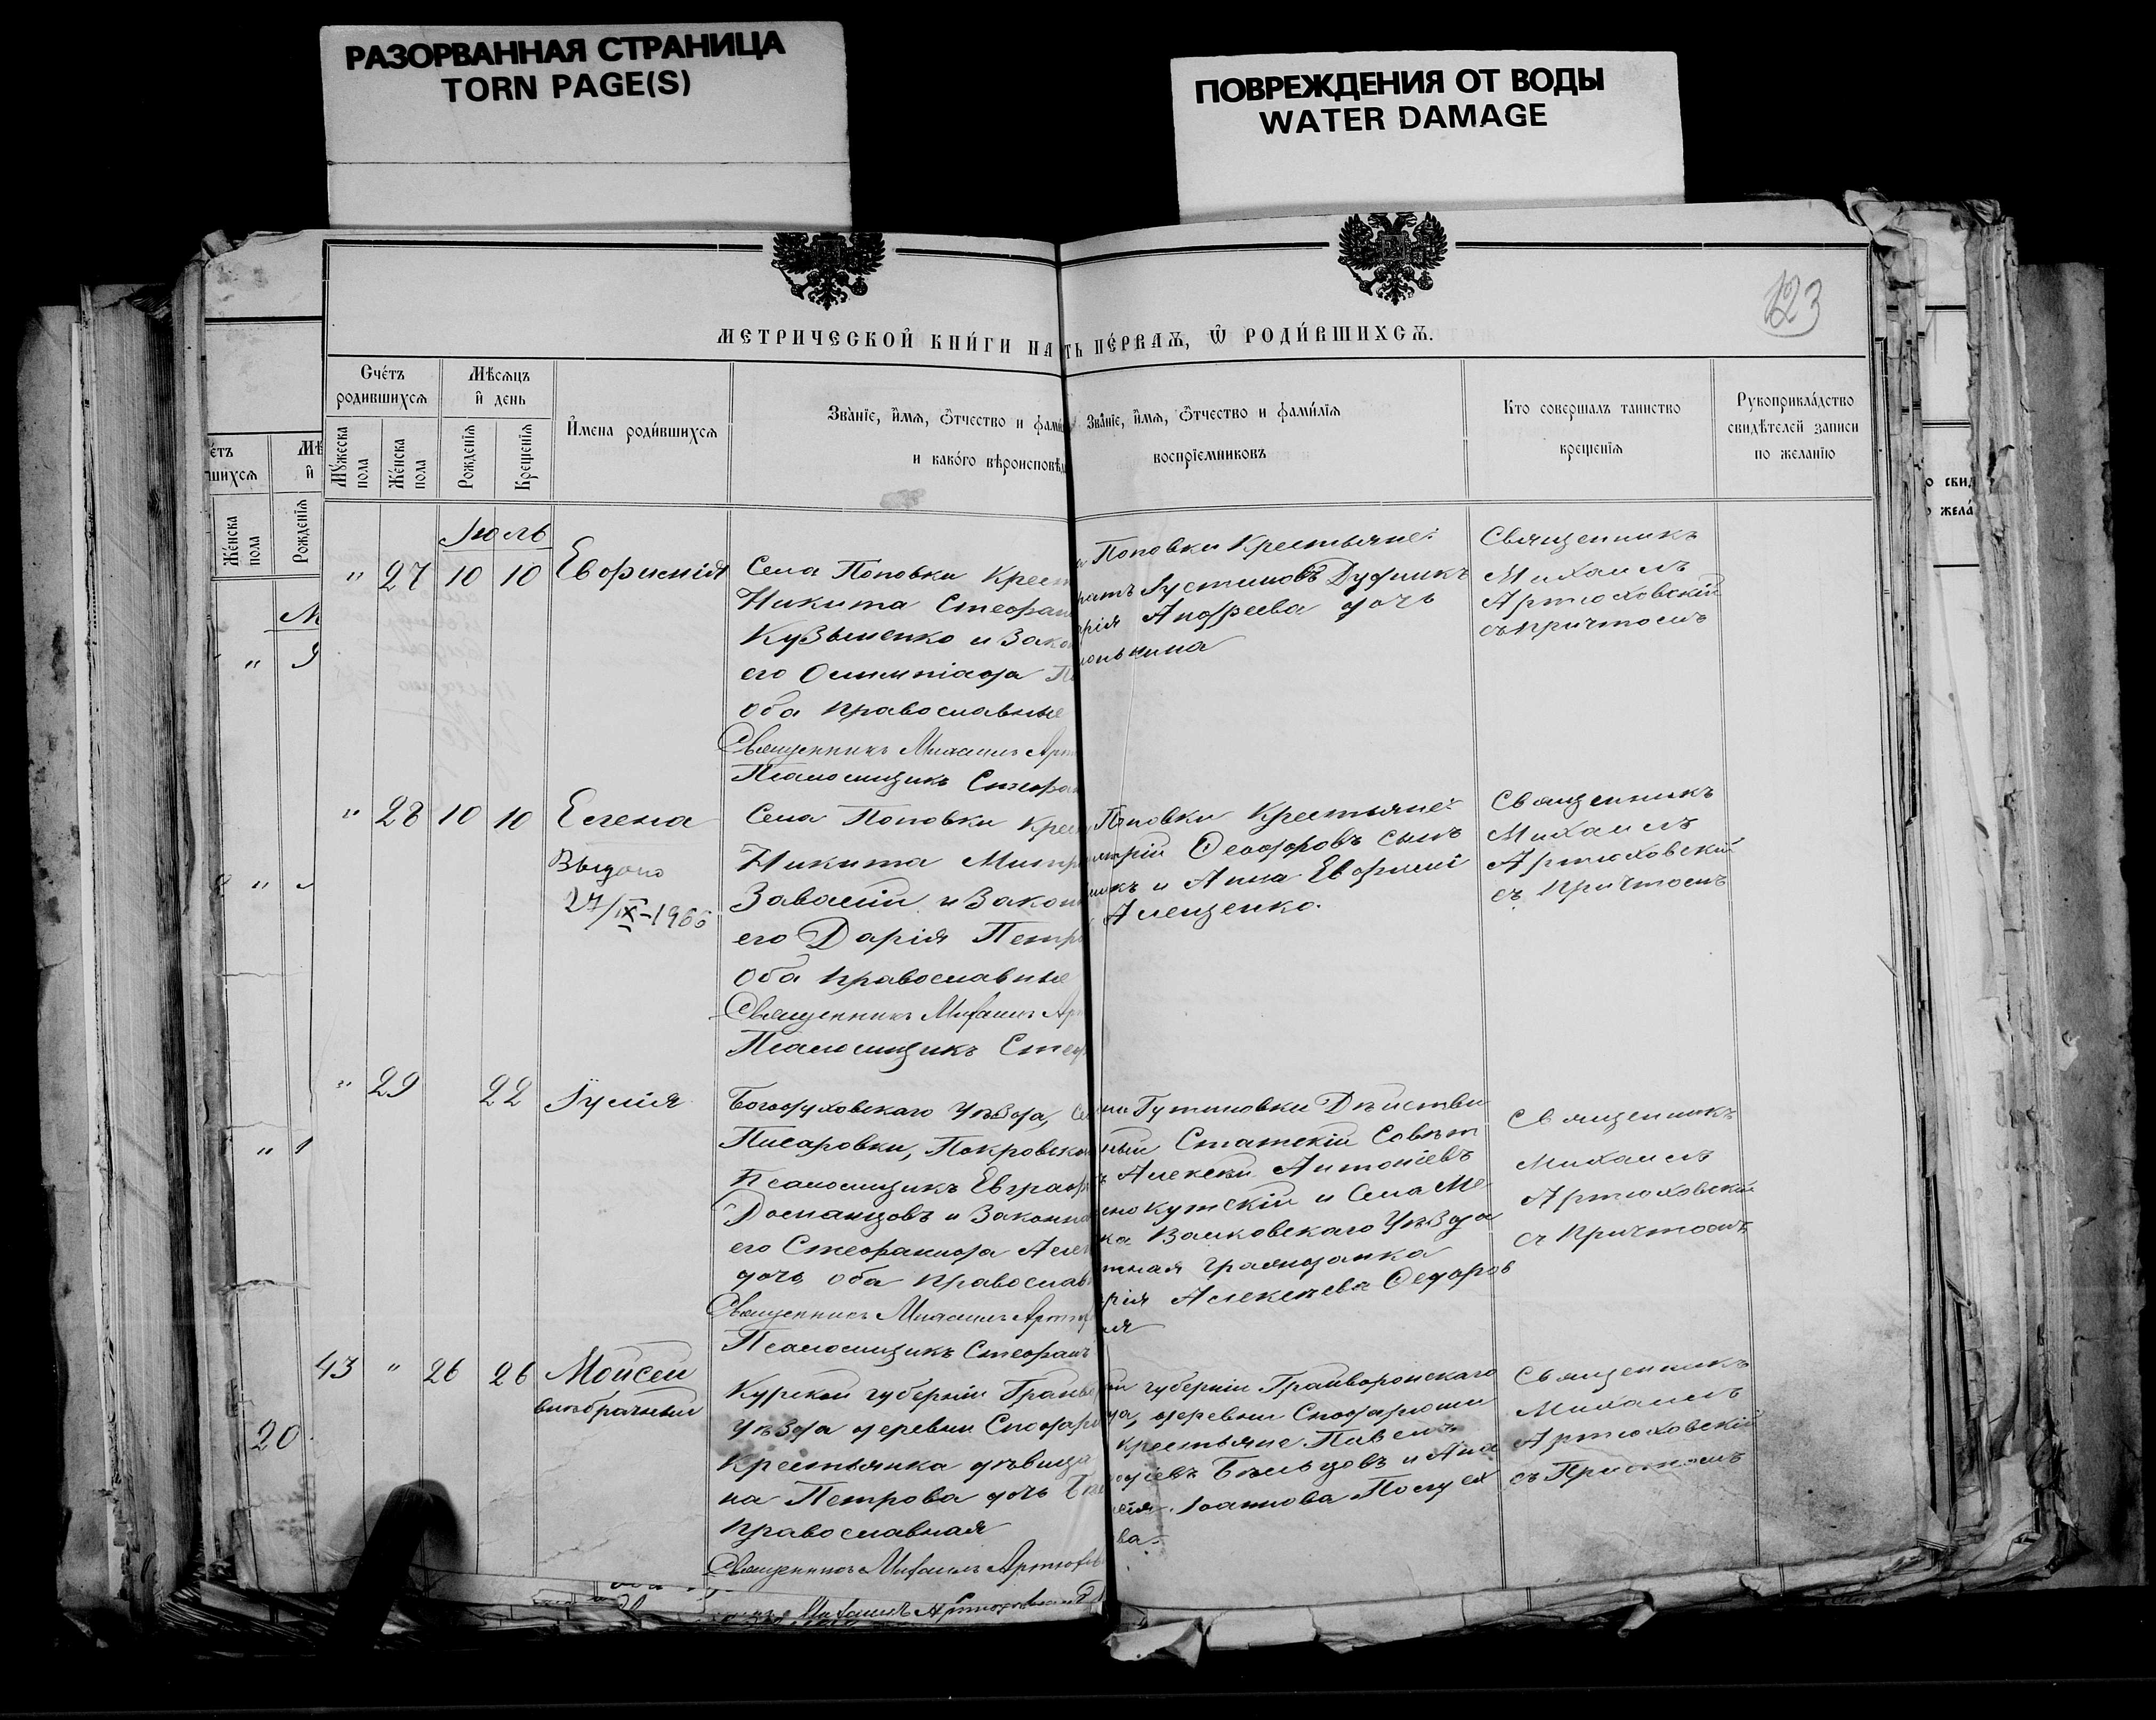 РАЗОРВАННАЯ СТРАНИЦА
TORN PAGE(S)
ПОВРЕЖДЕНИЯ ОТ ВОДЫ
WATER DAMAGE
123
МЕТРИЧЕСКОЙ КНИ́ГИ НА
ТЬ ПЕ́РВАѦ, Ѿ РОДИ́ВШИХСѦ.
Сче́тъ
родившихсѧ
Мѣсѧцъ
и҆ день
Мꙋжеска
пола
Же́нска
пола
Рожденїѧ
Крещенїѧ
И҆мена роди́вшихсѧ
Зва́нїе, и҆́мѧ, ѻ҆́тчество и фами
и како́го вѣроисповѣд
Зва́нїе, и҆́мѧ, ѻ҆́тчество и фами́лїѧ
воспрїемниковъ
Кто совершалъ таинство
крещенїѧ
Рукоприкла́дство
свидѣтелей записи
по жела́нїю
Іюль
" 27 10 10 Евфимія
Села Поповки Крест
Никита Стефан
Кузьменко и Закон
его Олимпіада П
оба православные
Священникъ Михаилъ Арт
Псаломщикъ Стефан
Поповки Крестьяне:
Іустиновъ Дудникъ
рія Андреева дочь
Священникъ
Михаилъ
Артюховскій
съ причтомъ
" 28 10 10 Елена
Выдано
27/IX-1966
Села Поповки Крес
Никита Митр
Завалій и Закон
его Дарія Петр
оба православные
Священникъ Михаилъ Ар
Псаломщикъ Стеф
Поповки Крестьяне:
итрій Феодоровъ сынъ
никъ и Анна Евфимі
Алещенко.
Священникъ
Михаилъ
Артюховскій
съ Причтомъ
" 29 22 Іулія
Богодуховскаго Уѣзда, Се
Писаровки, Покровск
Псаломщикъ Евграф
и Законна
его Стефанида Але
дочь оба православ
Священникъ Михаилъ Артюх
Псаломщикъ Стефан
Гутиновки Дѣйстви
ный Статскій Совѣт
Алексѣй Антоніевъ
нокутскій и Села Ме
ка Валковскаго Уѣзда
тная гражданка
рія Алексѣева Федоров
ая
Священникъ
Михаилъ
Артюховскій
съ Причтомъ
43 " 26 26 Мойсей
внѣбрачный
Курской губерніи Грайво
Уѣзда деревни
Крестьянка дѣвица
на Петрова дочь
православная
Священникъ Михаилъ Артюхов
губерніи Грайворонскаго
да, деревни
Крестьяне Павелъ
Бѣльцовъ и Ана
сія Іоаннова
ва.
Священникъ
Михаилъ
Артюховскій
съ Причтомъ
20